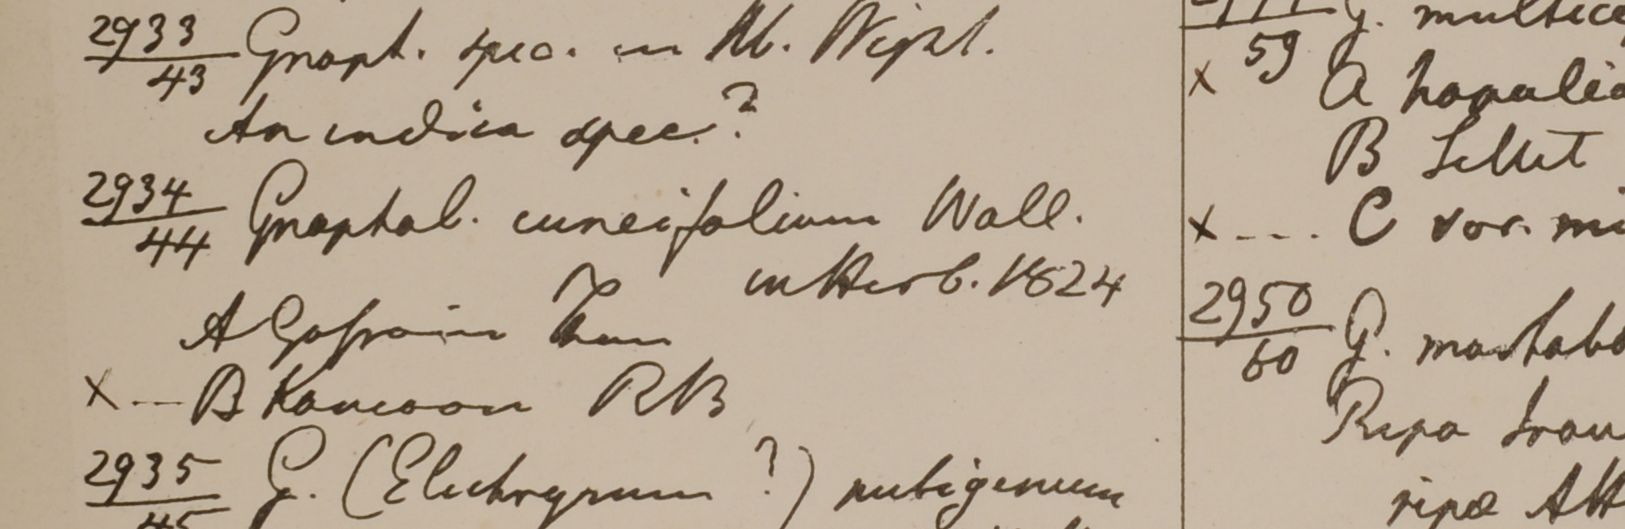 2933
43 Gnaph. spec. in Hb. Wight.
An indica spec.?
2934
44 Gnaphal. cuneifolium Wall.
in Herb. 1824
A Gossain Than
x -- B Kamaon RB
2935
45 G. (Elichrysum ?) nubigenum
59 G. multice
x A
B Sillet
x --- C var. mi
2950
60 G.
Ripa
ripa